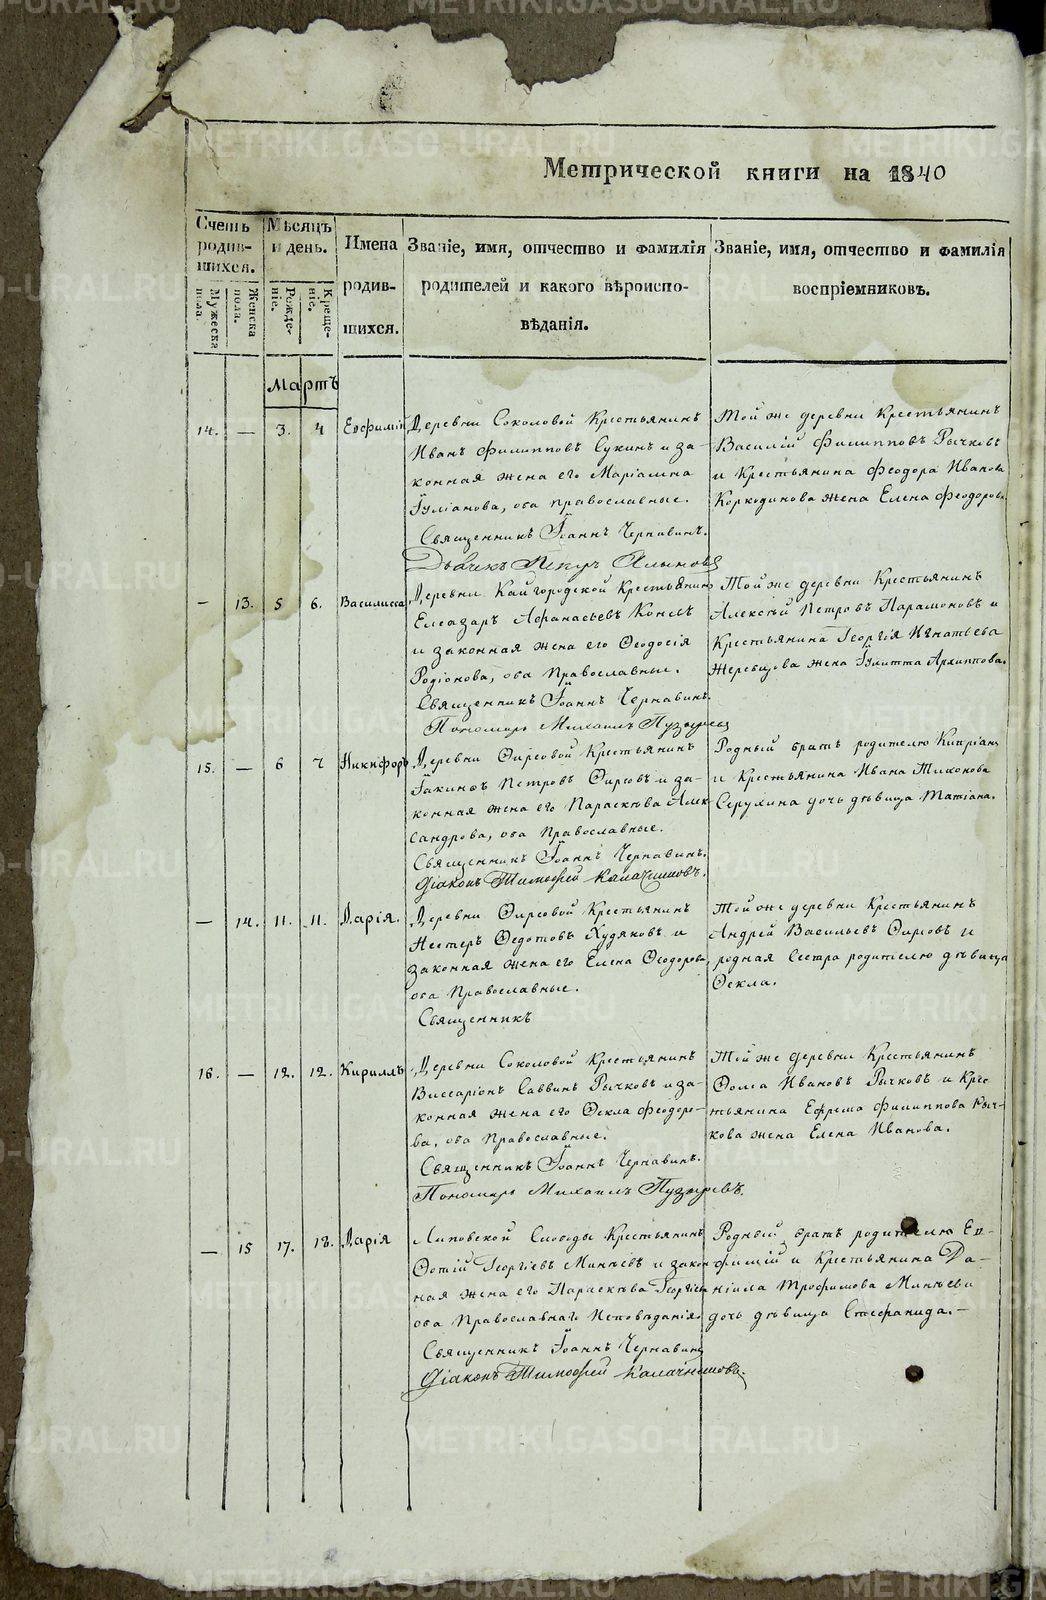 Метрической книги на 1840
Счетъ родив-шихся.
Мужеска пола.
Женска пола.
Мѣсяцъ и день.
Рожде-ніе.
Креще-ніе.
Имена родив-шихся.
Званіе, имя, отчество и фамилія
родителей и какого вѣроиспо-
вѣданія.
Званіе, имя, отчество и фамилія
воспріемниковъ.
Мартъ
14. — 3. 4 Евфимій
Деревни Соколовой Крестьянинъ
Иванъ Филипповъ Сукинъ и за-
конная жена его Маріамна
Іуліанова, оба православные.
Священникъ Іоаннъ Чернавинъ.
Дьячекъ Петръ
Той же деревни Крестьянинъ
Василій Филипповъ Рычковъ
и Крестьянина Феодора Иванова
Коркодинова жена Елена Феодорова
— 13. 5 6. Василисса
Деревни Кайгородской Крестьянинъ
Елеазаръ Афанасьевъ
и законная жена его Феодосія
Родіонова, оба Православные.
Священникъ Іоаннъ Чернавинъ.
Пономарь Михаилъ Пузыревъ
Той же деревни Крестьянинъ
Алексѣй Петровъ Парамоновъ и
Крестьянина Георгія Игнатьева
Жеребцова жена Іулитта Архиппова.
15. — 6 7 Никифоръ
Деревни Фирсовой Крестьянинъ
Іакинфъ Петровъ Фирсовъ и за-
конная жена его Параскѣва Алек-
сандрова, оба Православные.
Священникъ Іоаннъ Чернавинъ.
Діаконъ Тимофей Калачниковъ.
Родный братъ родителю Кипріанъ
и Крестьянина Ивана Тихонова
дочь дѣвица Татіана.
— 14. 11. 11. Дарія.
Деревни Фирсовой Крестьянинъ
Нестеръ Федотовъ Худяковъ и
законная жена его Елена Феодорова,
оба Православные.
Священникъ
Той же деревни Крестьянинъ
Андрей Васильевъ Фирсовъ и
родная Сестра родителю дѣвица
Фекла.
16. — 12. 12. Кириллъ
Деревни Соколовой Крестьянинъ
Виссаріонъ Саввинъ Рычковъ и за-
конная жена его Фекла Феодоро-
ва, оба Православные.
Священникъ Іоаннъ Чернавинъ.
Пономарь Михаилъ Пузыревъ.
Той же деревни Крестьянинъ
Фома Ивановъ Рычковъ и Крес-
тьянина Ефрема Филиппова Рыч-
кова жена Елена Иванова.
— 15 17. 18. Дарія
Липовской Слободы Крестьянинъ
Фотій Георгіевъ Минѣевъ и закон-
ная жена его Параскѣва Георгіева
оба Православнаго Исповѣданія.
Священникъ Іоаннъ Чернавинъ
Діаконъ Тимофей Калачниковъ.
Родный братъ родителю Ев-
фимій и Крестьянина Да-
ніила Трофимова Минѣева
дочь дѣвица Стефанида. —
METRIKI.GASO-URAL.RU